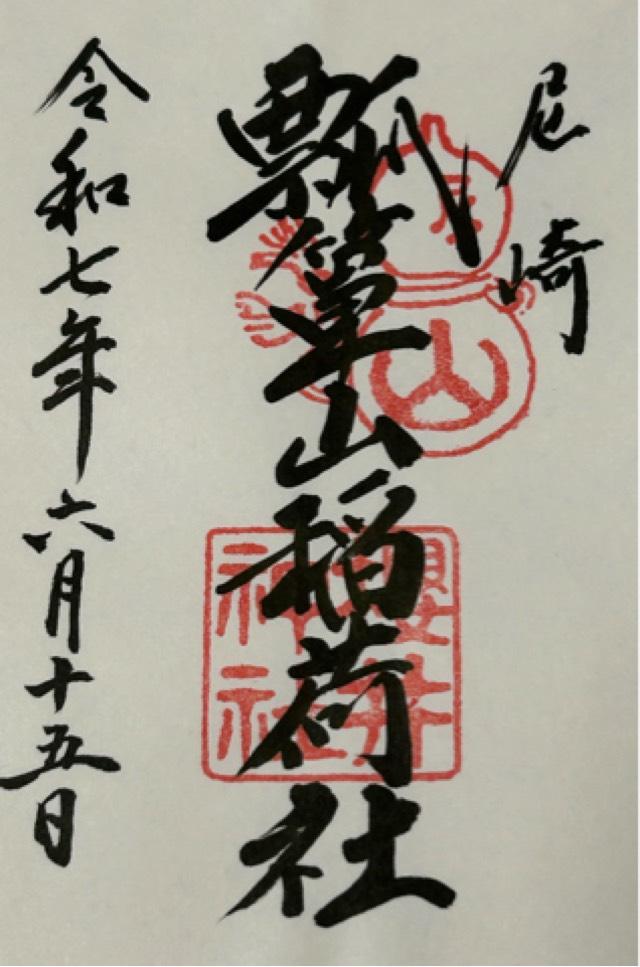 尼崎
瓢箪山稲荷社
櫻井
神社
令和七年六月十五日